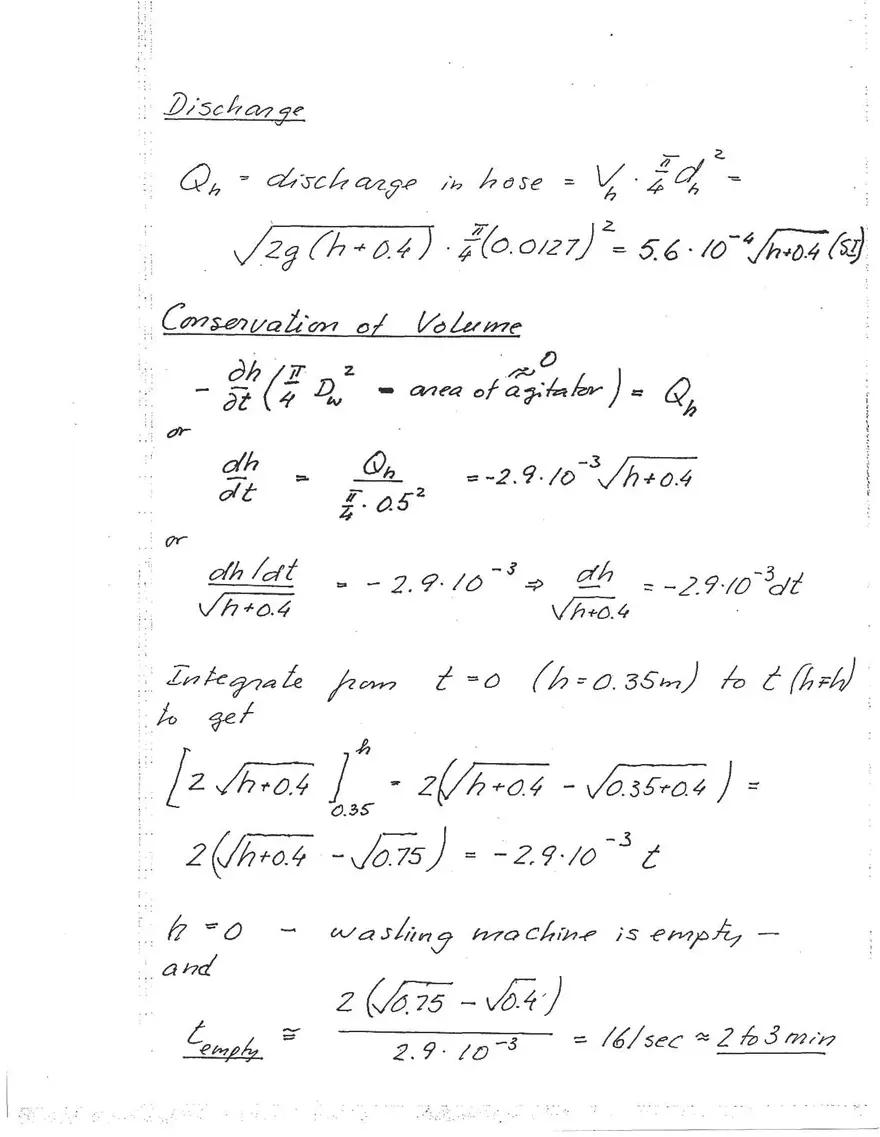 Discharge
Qh = discharge in hose = Vh · π/4 dh² =
√(2g(h+0.4)) · π/4(0.0127)² = 5.6·10⁻⁴√(h+0.4) (SI)
Conservation of Volume
- ∂h/∂t (π/4 Dw² - area of agitator ≈0) = Qh
or
dh/dt = Qh/(π/4 · 0.5²) = -2.9·10⁻³√(h+0.4)
or
(dh/dt)/√(h+0.4) = - 2.9·10⁻³ ⇒ dh/√(h+0.4) = -2.9·10⁻³dt
Integrate from t=0 (h=0.35m) to t (h=h)
to get
[2√(h+0.4)]_0.35^h = 2(√(h+0.4) - √(0.35+0.4)) =
2(√(h+0.4) - √0.75) = -2.9·10⁻³ t
h=0 - washing machine is empty -
and
t_empty ≅ 2(√0.75 - √0.4)/(2.9·10⁻³) = 161 sec ≈ 2 to 3 min